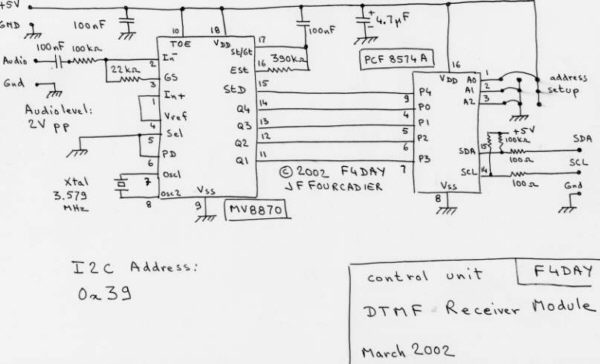 +5V
GND
100nF
10
18
TOE
VDD
17
St/Gt
100nF
+
4.7µF
Audio
100nF
100kΩ
2
In-
390kΩ
16
Est
PCF 8574A
16
VDD
A0
1
A1
2
A2
3
address
setup
22kΩ
GS
3
Gnd
Audio level:
2V pp
In+
1
Vref
4
Sel
5
PD
6
StD
15
Q4
14
Q3
13
Q2
12
Q1
11
P4
9
P0
4
P1
5
P2
6
P3
7
+5V
100kΩ
SDA
15
100Ω
SDA
SCL
14
100Ω
SCL
Gnd
Xtal
3.579
MHz
Osc1
7
Osc2
8
Vss
9
MV8870
© 2002 F4DAY
JF FOURCADIER
Vss
8
I2C Address:
0x39
control unit
F4DAY
DTMF Receiver Module
March 2002